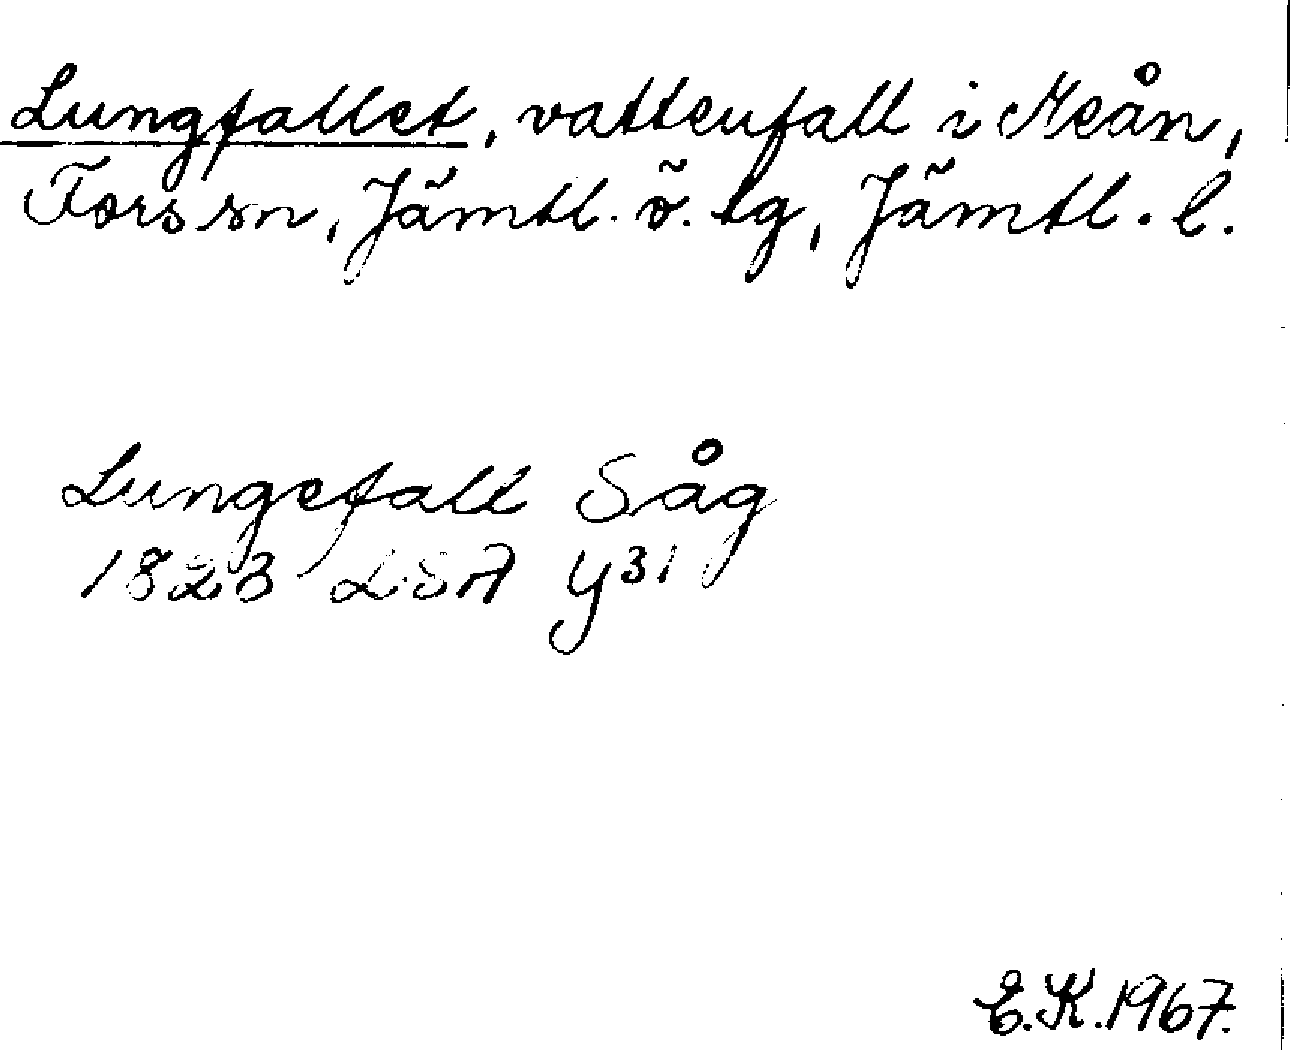 Lungfallet, vattenfall i Meån,
Fors sn, Jämtl. ö. tg, Jämtl. l.
Lungefall Såg
1823 LSA Y31
E.K. 1967.